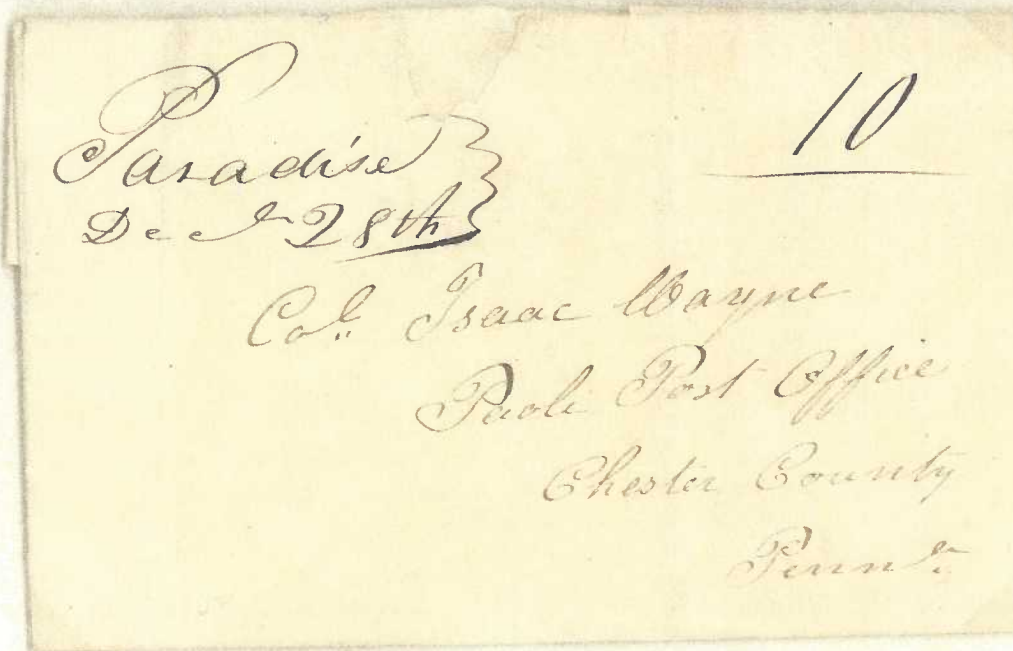 Paradise
Decr 28th
10
Col. Isaac Wayne
Paoli Post Office
Chester County
Penna